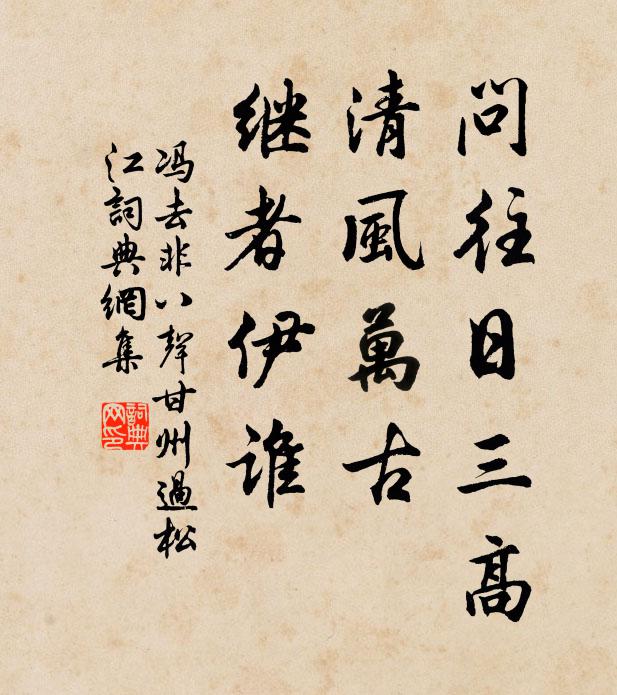 问往日三高
清風萬古
继者伊谁
冯去非八聲甘州過松
江詞典網集
詞典
网印